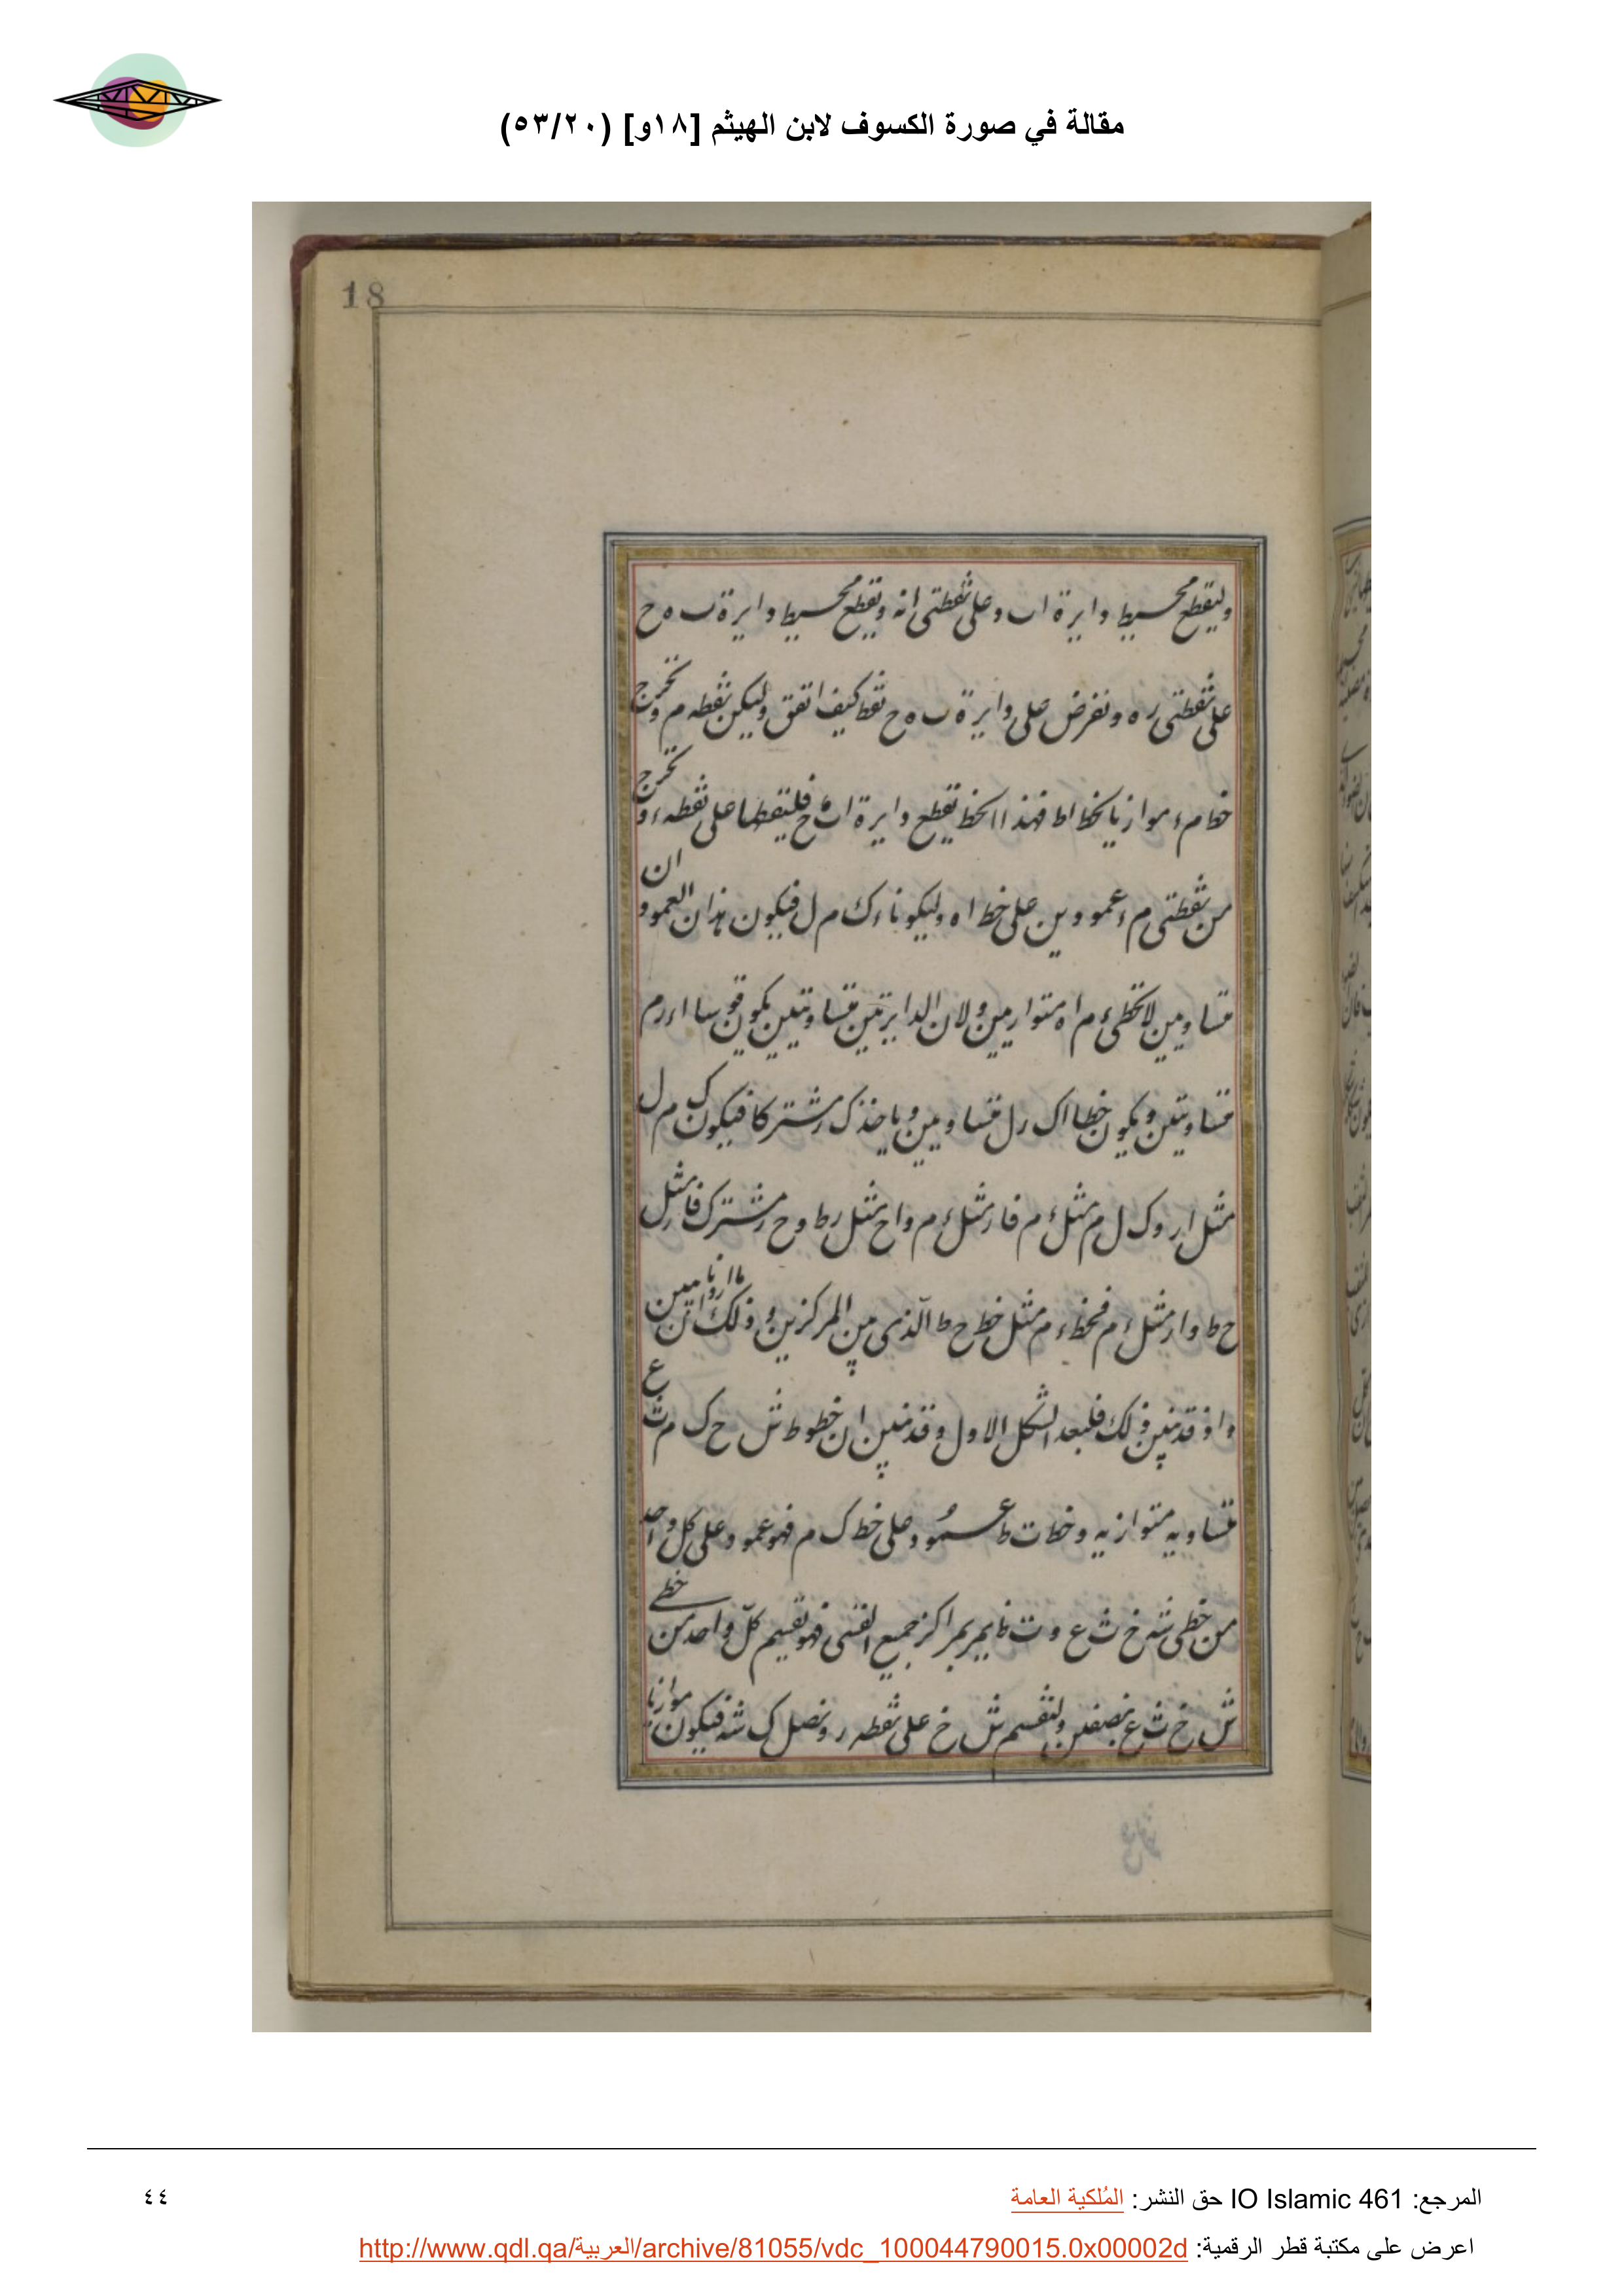 مقالة في صورة الكسوف لابن الهيثم [١٨و] (٥٣/٢٠)
18
وليقطع محيط دايرة اب وعلى نقطتى انه ويقطع محيط دايرة ب ه ح
على نقطتى ر ه ونفرض على دايرة ب ه ح نقط كيف اتفق وليكن نقطه م ونخرج
خط م ء موازيا لخط اط فهذا الخط يقطع دايرة اب ح فليقطعها على نقطه ء ونخرج
من نقطتى م ء عمودين على خط اه وليكونا ء ك م ل فيكون هذان العمودان
متساويين لان خطى ء م اه متوازيين ولان الدايرتين متساويتين يكون قوسا اء ر م
متساويتين ويكون خطا اك ر ل متساويين وياخذ ك ر مشتركا فيكون ك ل
مثل ار وك ل م مثل ء م فار مثل ء م واح مثل رط وح ر مشترك فار مثل
ح ط وار مثل ء م فخط ء م مثل خط ح ط الذى بين المركزين وذلك ما اردنا ان نبين
واذ قد تبين ذلك فلنعد الشكل الاول وقد تبين ان خطوط ش خ ك م ث ع
متساويه متوازيه وخط ت ط عمود على خط ك م فهو عمود على كل واحد
من خطى ش خ ث ع و ت ط يمر بمراكز جميع القسى فهو يقسم كل واحد من خطى
ش خ ث ع بنصفين ولنقسم ش خ على نقطه ر ونصل ك ش فيكون موازيا
المرجع: IO Islamic 461 حق النشر: المُلكية العامة
٤٤
اعرض على مكتبة قطر الرقمية: http://www.qdl.qa/العربية/archive/81055/vdc_100044790015.0x00002d